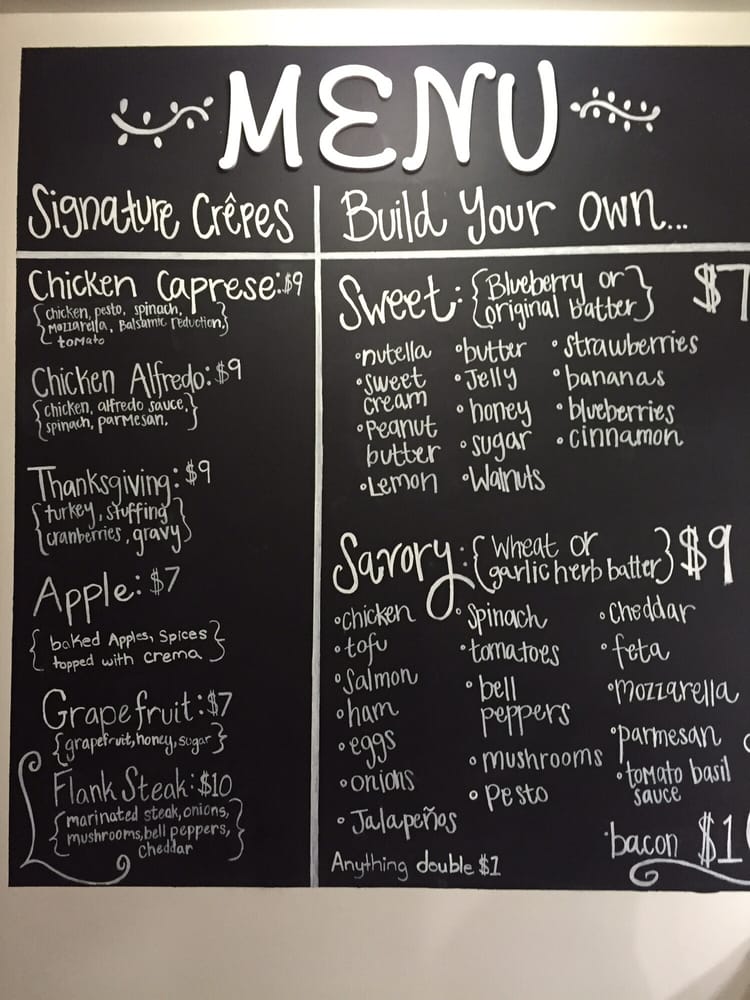 MENU
Signature Crêpes
Chicken Caprese: $9
{chicken, pesto, spinach,
mozzarella, Balsamic reduction,
tomato}
Chicken Alfredo: $9
{chicken, alfredo sauce,
spinach, parmesan,}
Thanksgiving: $9
{turkey, stuffing
cranberries, gravy}
Apple: $7
{baked Apples, Spices
topped with crema}
Grapefruit: $7
{grapefruit, honey, sugar}
Flank Steak: $10
{marinated steak, onions,
mushrooms, bell peppers,
cheddar}
Build Your Own...
Sweet: {Blueberry or
original batter} $7
• nutella
• sweet
cream
• Peanut
butter
• Lemon
• butter
• Jelly
• honey
• sugar
• Walnuts
• strawberries
• bananas
• blueberries
• cinnamon
Savory: {Wheat or
garlic herb batter} $9
• chicken
• tofu
• Salmon
• ham
• eggs
• onions
• Jalapeños
• Spinach
• tomatoes
• bell
peppers
• mushrooms
• Pesto
• cheddar
• feta
• mozzarella
• parmesan
• tomato basil
sauce
• bacon $1
Anything double $1